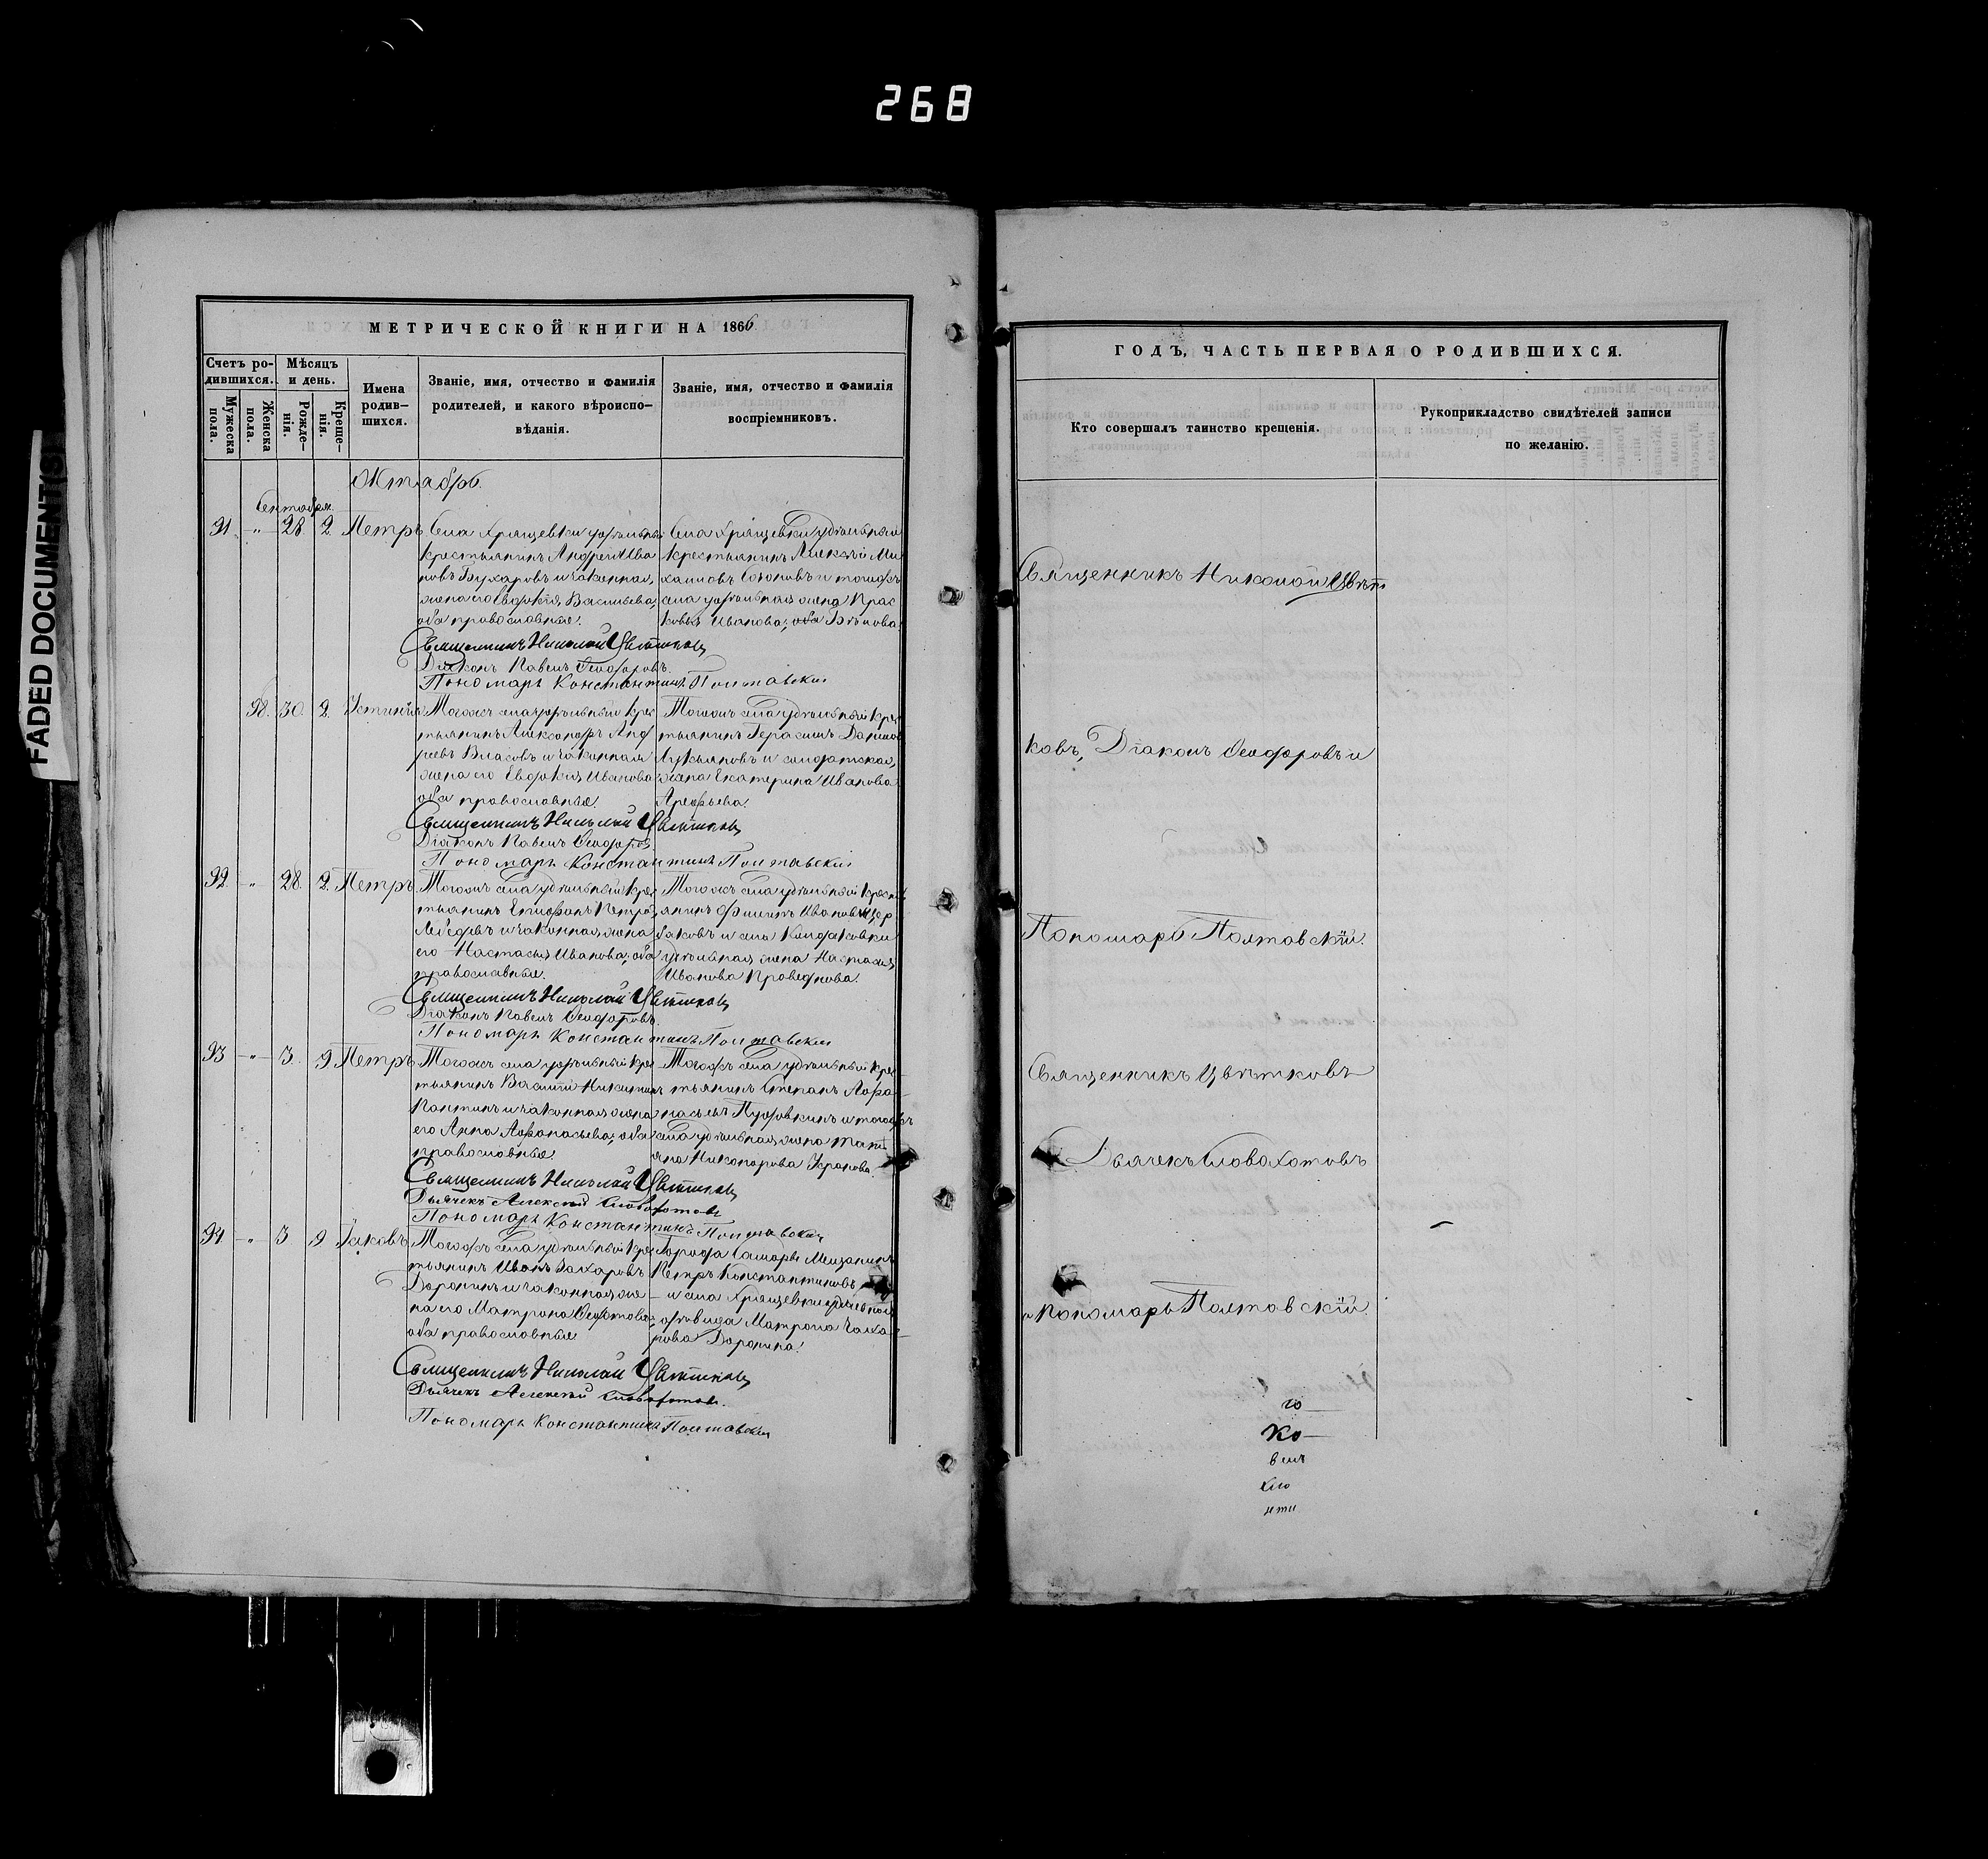 268
FADED DOCUMENT(S)
МЕТРИЧЕСКОЙ КНИГИ НА 1866
Счетъ ро-
дившихся.
Мѣсяцъ
и день.
Мужеска
пола.
Женска
пола.
Рожде-
нія.
Креще-
нія.
Имена
родив-
шихся.
Званіе, имя, отчество и фамилія
родителей, и какого вѣроиспо-
вѣданія.
Званіе, имя, отчество и фамилія
воспріемниковъ.
Октябрь.
Сентября.
91 " 28 2. Петръ
Села Хрящевки удѣльный
крестьянинъ Андрей Ива
новъ Бухаровъ и законная
жена его Евдокія Васильева,
оба православные.
Села Хрящевки удѣльный
крестьянинъ Алексѣй Ми
хайловъ и тогожъ
села удѣльная жена Прас
ковья Иванова;
Священникъ Николай Цвѣтковъ
Діаконъ Павелъ Ѳеодоровъ
Пономарь Константинъ Полтавскій
98. 30. 2. Устинія
Тогожъ села удѣльный крес
тьянинъ Александръ Анд
реевъ Власовъ и законная
жена его Евдокія Иванова
оба православные.
Тогожъ села удѣльный крес
тьянинъ Герасимъ Данилов
Лукьяновъ и солдатская
жена Екатерина Иванова
Арефьева.
Священникъ Николай Цвѣтковъ
Діаконъ Павелъ Ѳеодоров
Пономарь Константинъ Полтавскій
92 " 28. 2 Петръ
Тогожъ села удѣльный крес
тьянинъ Епифанъ Петров
Лебедевъ и законная жена
его Настасья Иванова, оба
православные.
Тогожъ села удѣльный кресть
янинъ Филиппъ Ивановъ Щер
баковъ и села Кондаковки
удѣльная жена Настасья
Иванова
Священникъ Николай Цвѣтковъ
Діаконъ Павелъ Ѳеодоровъ
Пономарь Константинъ Полтавскій
93 " 3. 9 Петръ
Тогожъ села удѣльный крес
тьянинъ Василій Никитинъ
Пантинъ и законная жена
его Анна Аѳанасьева, оба
православные.
Тогожъ села удѣльный крес
тьянинъ Степанъ Аѳа
насьевъ Пудовкинъ и тогожъ
села удѣльная жена Тать
яна Никонорова
Священникъ Николай Цвѣтковъ
Дьячекъ Алексѣй Словохотовъ
Пономарь Константинъ Полтавскій
94 " 3 9 Іаковъ
Тогожъ села удѣльный крес
тьянинъ Иванъ Захаровъ
Доронинъ и законная же
на его Матрона Ѳедотова;
оба православные
Города Самары Мещанинъ
Петръ Константиновъ
и села Хрящевки удѣльная
дѣвица Матрона Заха
рова Доронина.
Священникъ Николай Цвѣтковъ
Дьячекъ Алексѣй Словохотовъ.
Пономарь Константинъ Полтавскій
ГОДЪ, ЧАСТЬ ПЕРВАЯ О РОДИВШИХСЯ.
Кто совершалъ таинство крещенія.
Рукоприкладство свидѣтелей записи
по желанію.
Священникъ Николай Цвѣт
ковъ, Діаконъ Ѳеодоровъ и
Пономарь Полтавскій.
Священникъ Цвѣтковъ
Дьячекъ Словохотовъ
и Пономарь Полтавскій.
го
ко
велъ
сло
нти